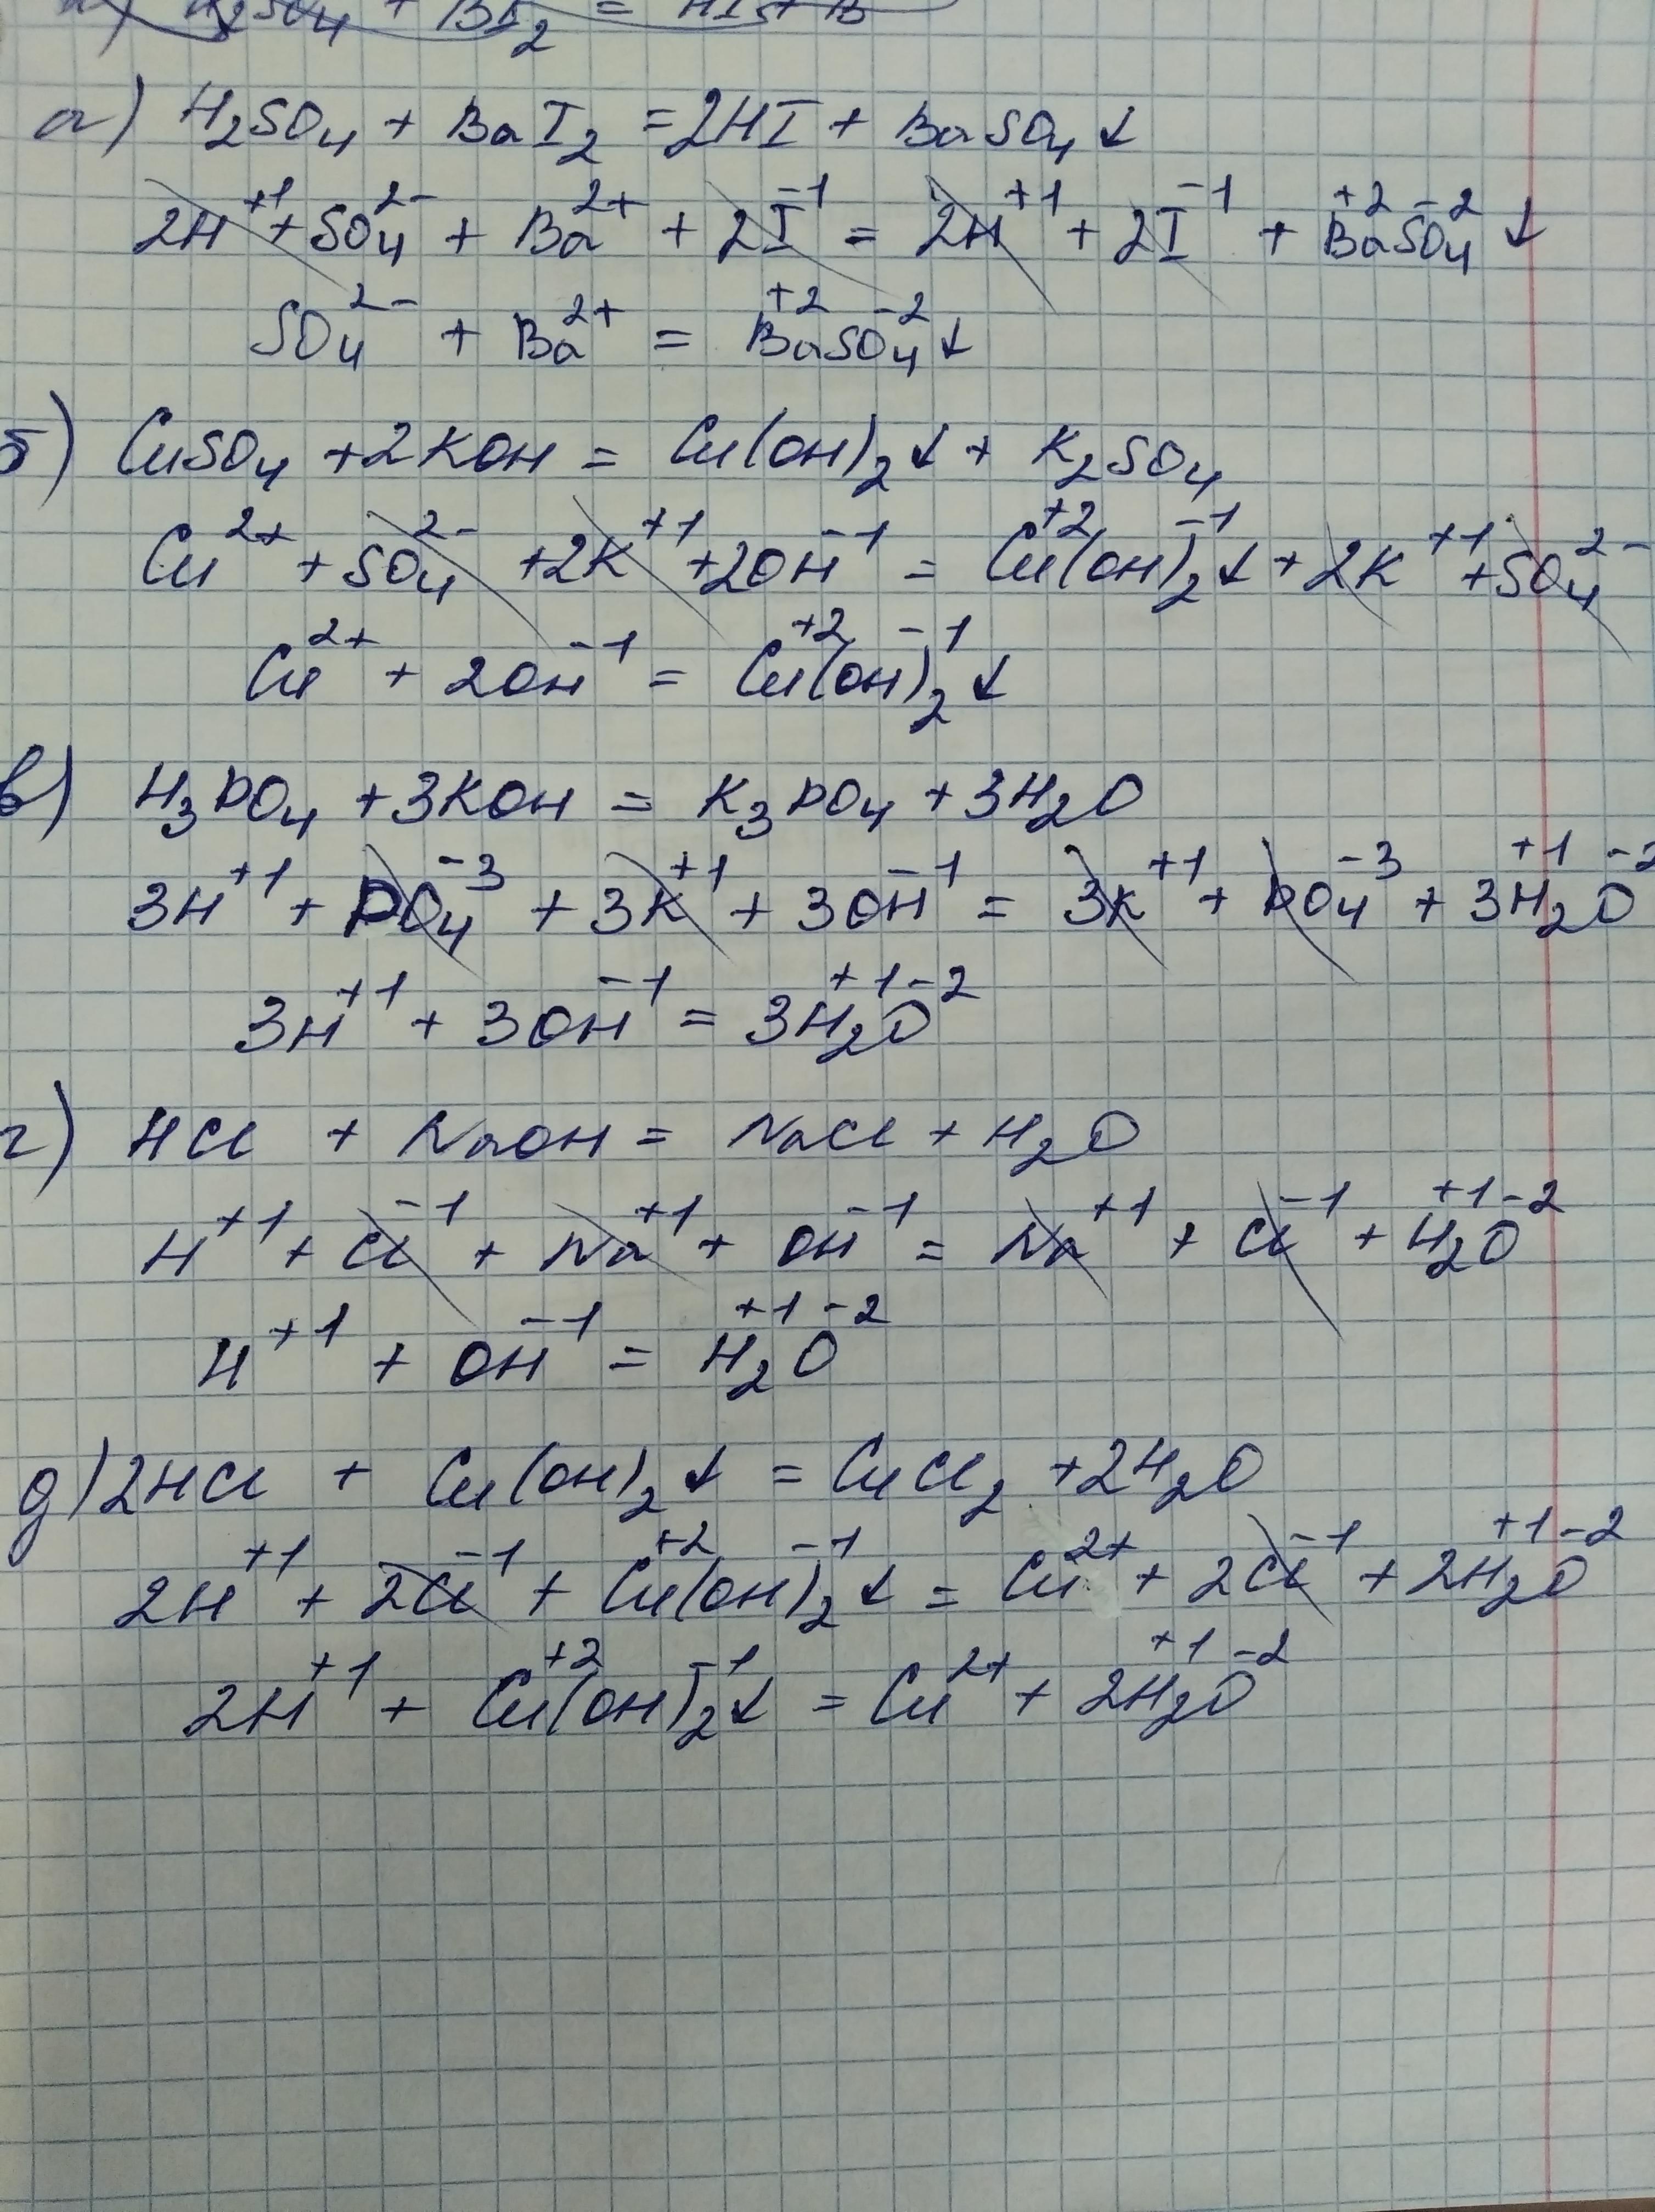 H₂SO₄ + BI₂ = HI
а) H₂SO₄ + BaI₂ = 2HI + BaSO₄↓
2H⁺¹ + SO₄²⁻ + Ba²⁺ + 2I⁻¹ = 2H⁺¹ + 2I⁻¹ + Ba⁺²SO₄⁻²↓
SO₄²⁻ + Ba²⁺ = Ba⁺²SO₄⁻²↓
б) CuSO₄ + 2KOH = Cu(OH)₂↓ + K₂SO₄
Cu²⁺ + SO₄²⁻ + 2K⁺¹ + 2OH⁻¹ = Cu⁺²(OH)₂⁻¹↓ + 2K⁺¹ + SO₄²⁻
Cu²⁺ + 2OH⁻¹ = Cu⁺²(OH)₂⁻¹↓
в) H₃PO₄ + 3KOH = K₃PO₄ + 3H₂O
3H⁺¹ + PO₄⁻³ + 3K⁺¹ + 3OH⁻¹ = 3K⁺¹ + PO₄⁻³ + 3H₂⁺¹O⁻²
3H⁺¹ + 3OH⁻¹ = 3H₂⁺¹O⁻²
г) HCl + NaOH = NaCl + H₂O
H⁺¹ + Cl⁻¹ + Na⁺¹ + OH⁻¹ = Na⁺¹ + Cl⁻¹ + H₂⁺¹O⁻²
H⁺¹ + OH⁻¹ = H₂⁺¹O⁻²
д) 2HCl + Cu(OH)₂↓ = CuCl₂ + 2H₂O
2H⁺¹ + 2Cl⁻¹ + Cu⁺²(OH)₂⁻¹↓ = Cu²⁺ + 2Cl⁻¹ + 2H₂⁺¹O⁻²
2H⁺¹ + Cu⁺²(OH)₂⁻¹↓ = Cu²⁺ + 2H₂⁺¹O⁻²